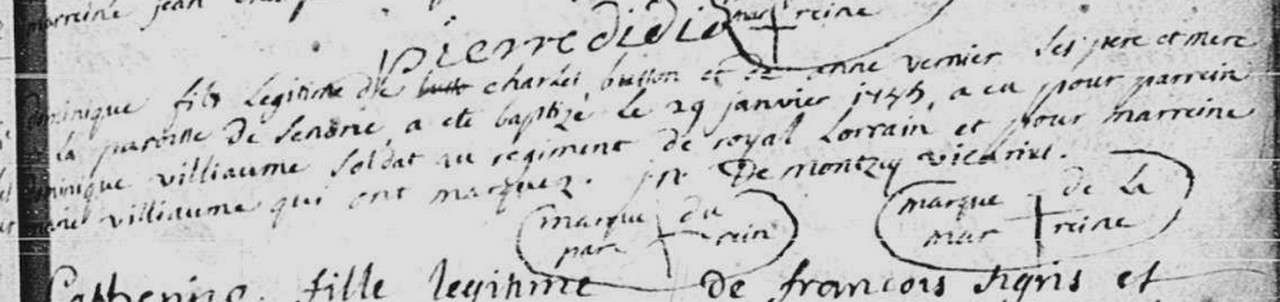 marreine jean
pierre didie mar reine
dominique fils legitime de charles buisson et de anne vernier ses pere et mere
la paroisse de senone, a ete baptizé le 29 janvier, a eu pour parrein
dominique villiaume soldat au regiment de royal Lorrain et pour marreine
villiaume qui ont marquez. De montzey vicarius.
marque du marque de la
par rein mar reine
Catherine fille legitime de francois et